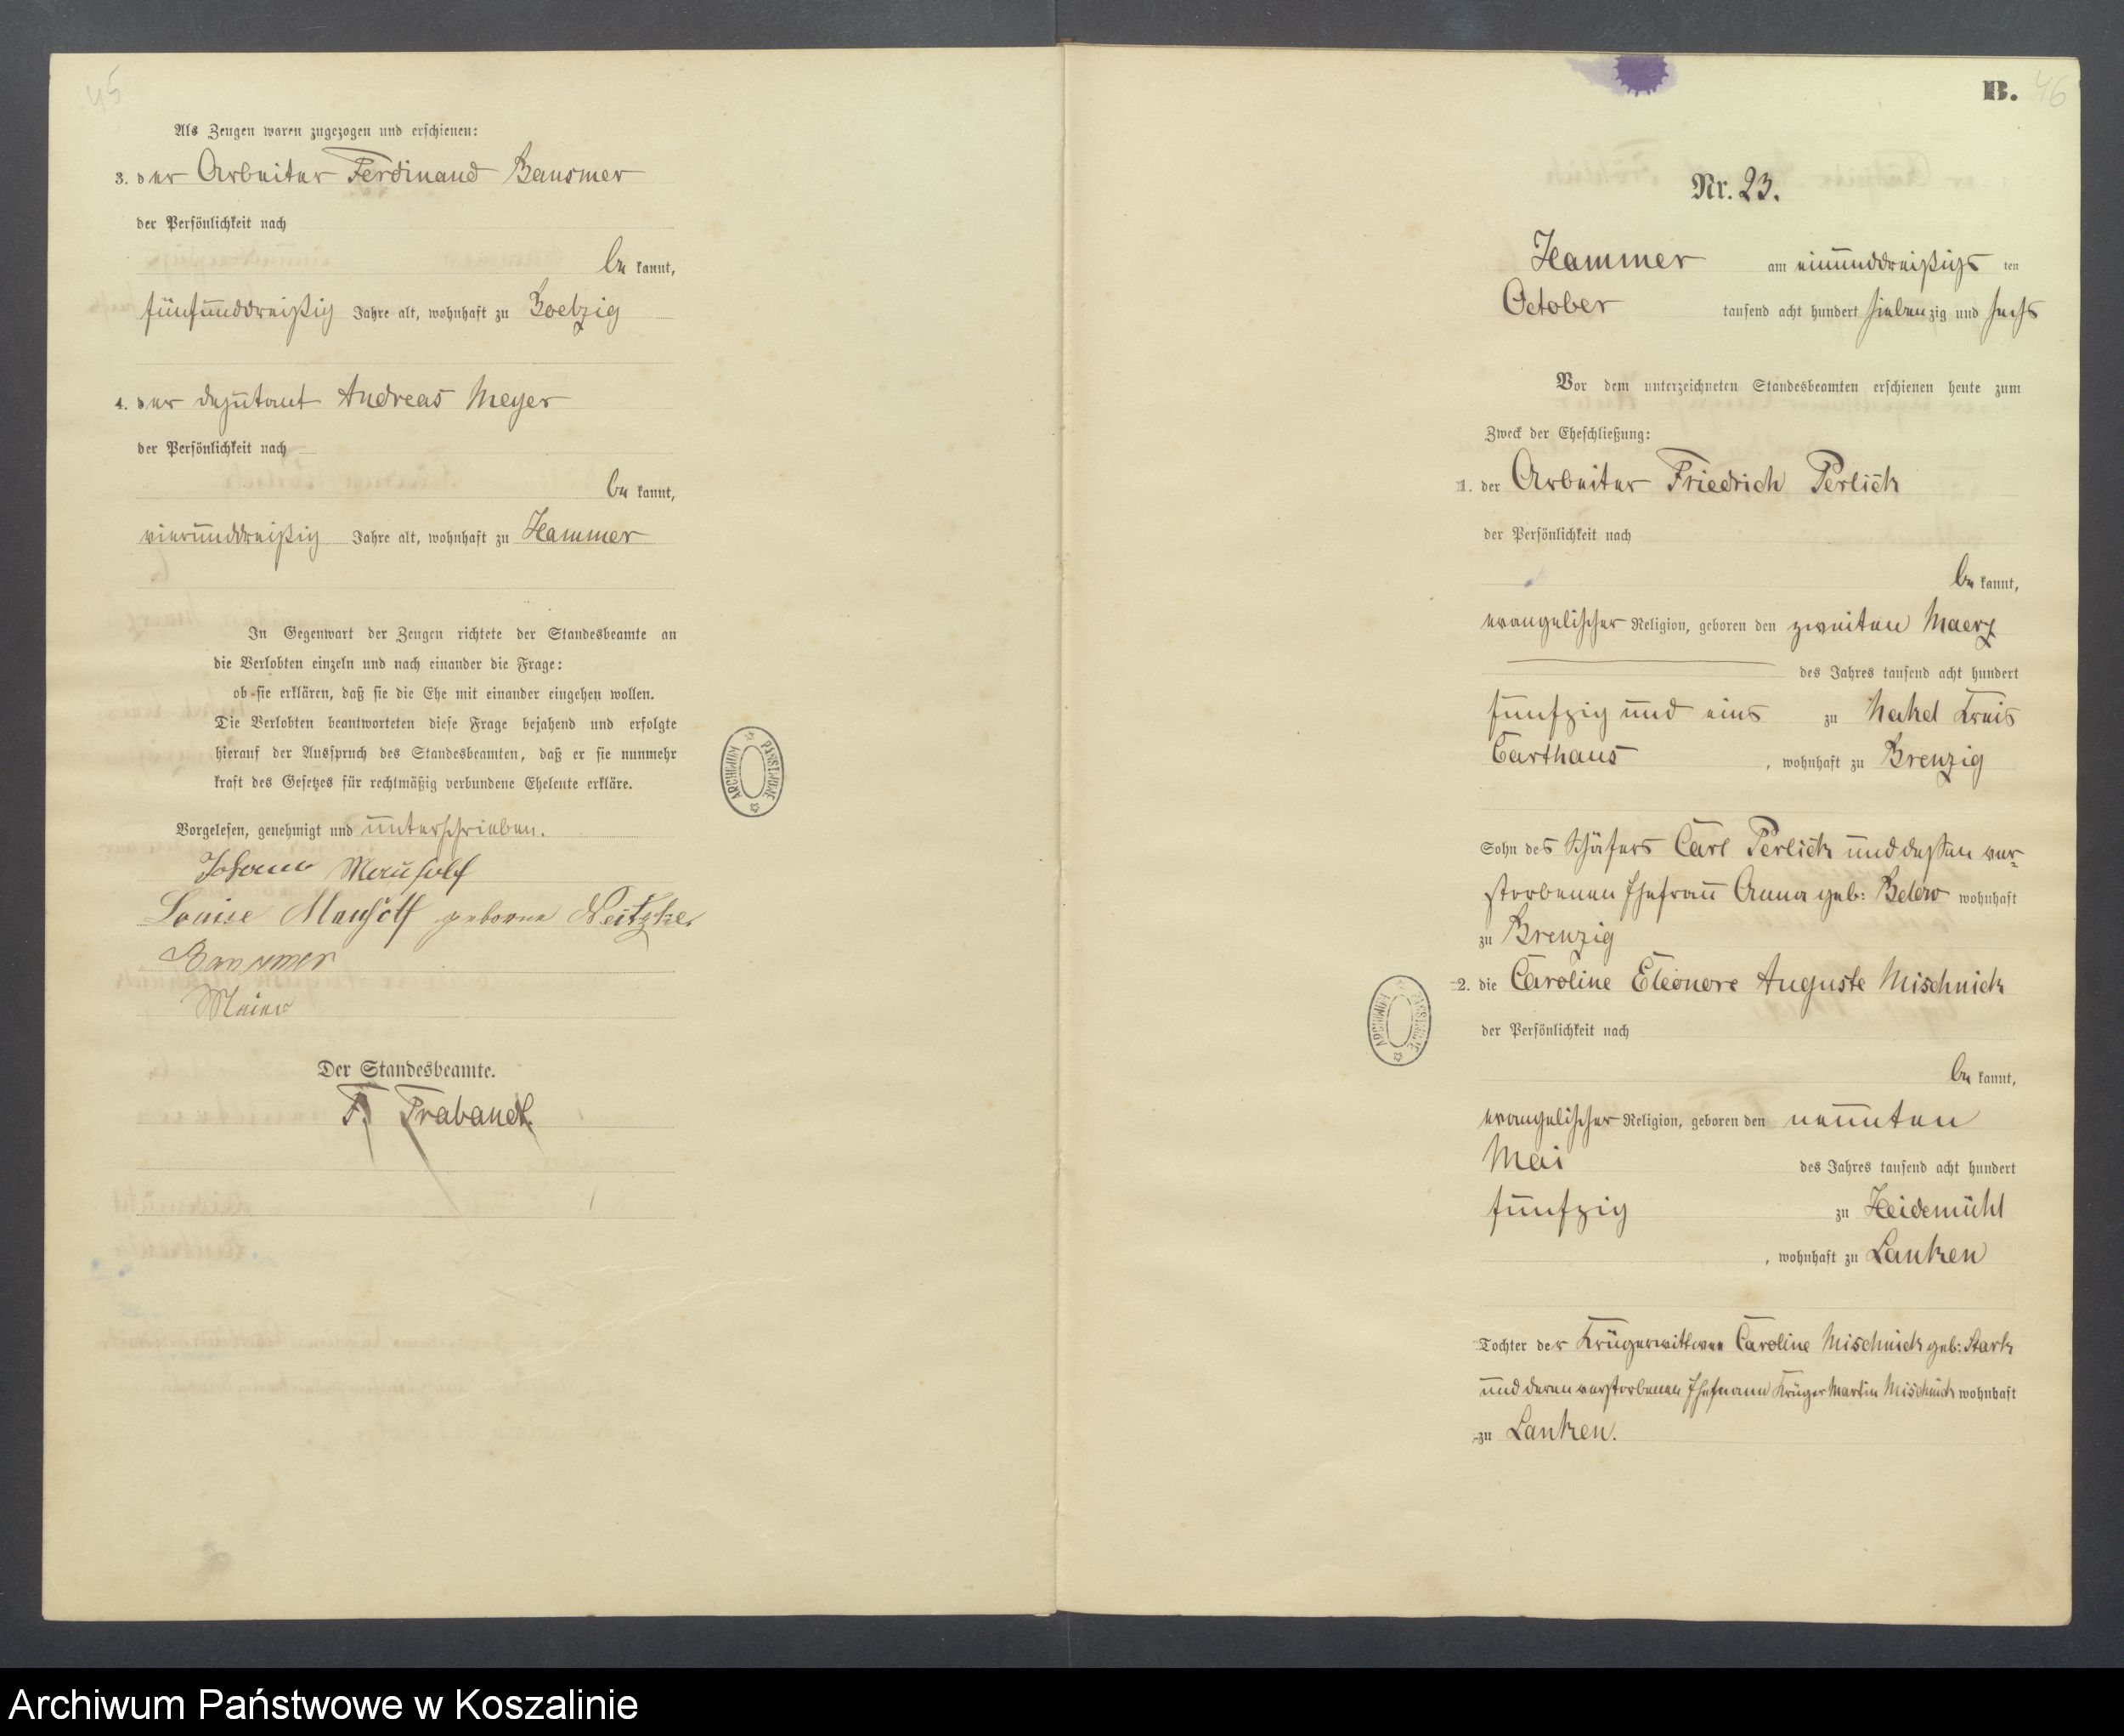 45
Als Zeugen waren zugezogen und erschienen:
3. der Arbeiter Ferdinand Bansmer
der Persönlichkeit nach
be kannt,
fünfunddreißig Jahre alt, wohnhaft zu Loebzig
4. der Deputant Andreas Meyer
der Persönlichkeit nach
be kannt,
vierunddreißig Jahre alt, wohnhaft zu Hammer
In Gegenwart der Zeugen richtete der Standesbeamte an
die Verlobten einzeln und nach einander die Frage:
ob sie erklären, daß sie die Ehe mit einander eingehen wollen.
Die Verlobten beantworteten diese Frage bejahend und erfolgte
hierauf der Ausspruch des Standesbeamten, daß er sie nunmehr
kraft des Gesetzes für rechtmäßig verbundene Eheleute erkläre.
Vorgelesen, genehmigt und unterschrieben.
Mausolf
Louise Mausolf geborne Neitzke
Bansmer
Meier
Der Standesbeamte.
F. Trabandt
ARCHIWUM PAŃSTWOWE
B. 46
Nr. 23.
Hammer am einunddreißigs ten
October tausend acht hundert sieben zig und sechs
Vor dem unterzeichneten Standesbeamten erschienen heute zum
Zweck der Eheschließung:
1. der Arbeiter Friedrich Perlick
der Persönlichkeit nach
be kannt,
evangelischer Religion, geboren den zweiten Maerz
des Jahres tausend acht hundert
funfzig und eins zu Nakel Kreis
Carthaus, wohnhaft zu Brenzig
Sohn des Schäfers Carl Perlick und dessen ver-
storbenen Ehefrau Anna geb: Below wohnhaft
zu Brenzig
2. die Caroline Eleonore Auguste Mischnick
der Persönlichkeit nach
be kannt,
evangelischer Religion, geboren den neunten
Mai des Jahres tausend acht hundert
funfzig zu Heidemühl
, wohnhaft zu Lanken
Tochter der Krügerwittwe Caroline Mischnick geb: Stark
und deren verstorbenen Ehemann Krüger Martin Mischnick wohnhaft
zu Lanken.
ARCHIWUM PAŃSTWOWE
Archiwum Państwowe w Koszalinie